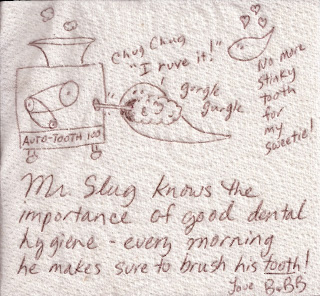 Chug Chug
"I ruve it!"
gurgle
gurgle
No more
stinky
tooth
for
my
sweetie!
AUTO-TOOTH 100
Mr. Slug knows the
importance of good dental
hygiene - every morning
he makes sure to brush his tooth!
Love BoBB